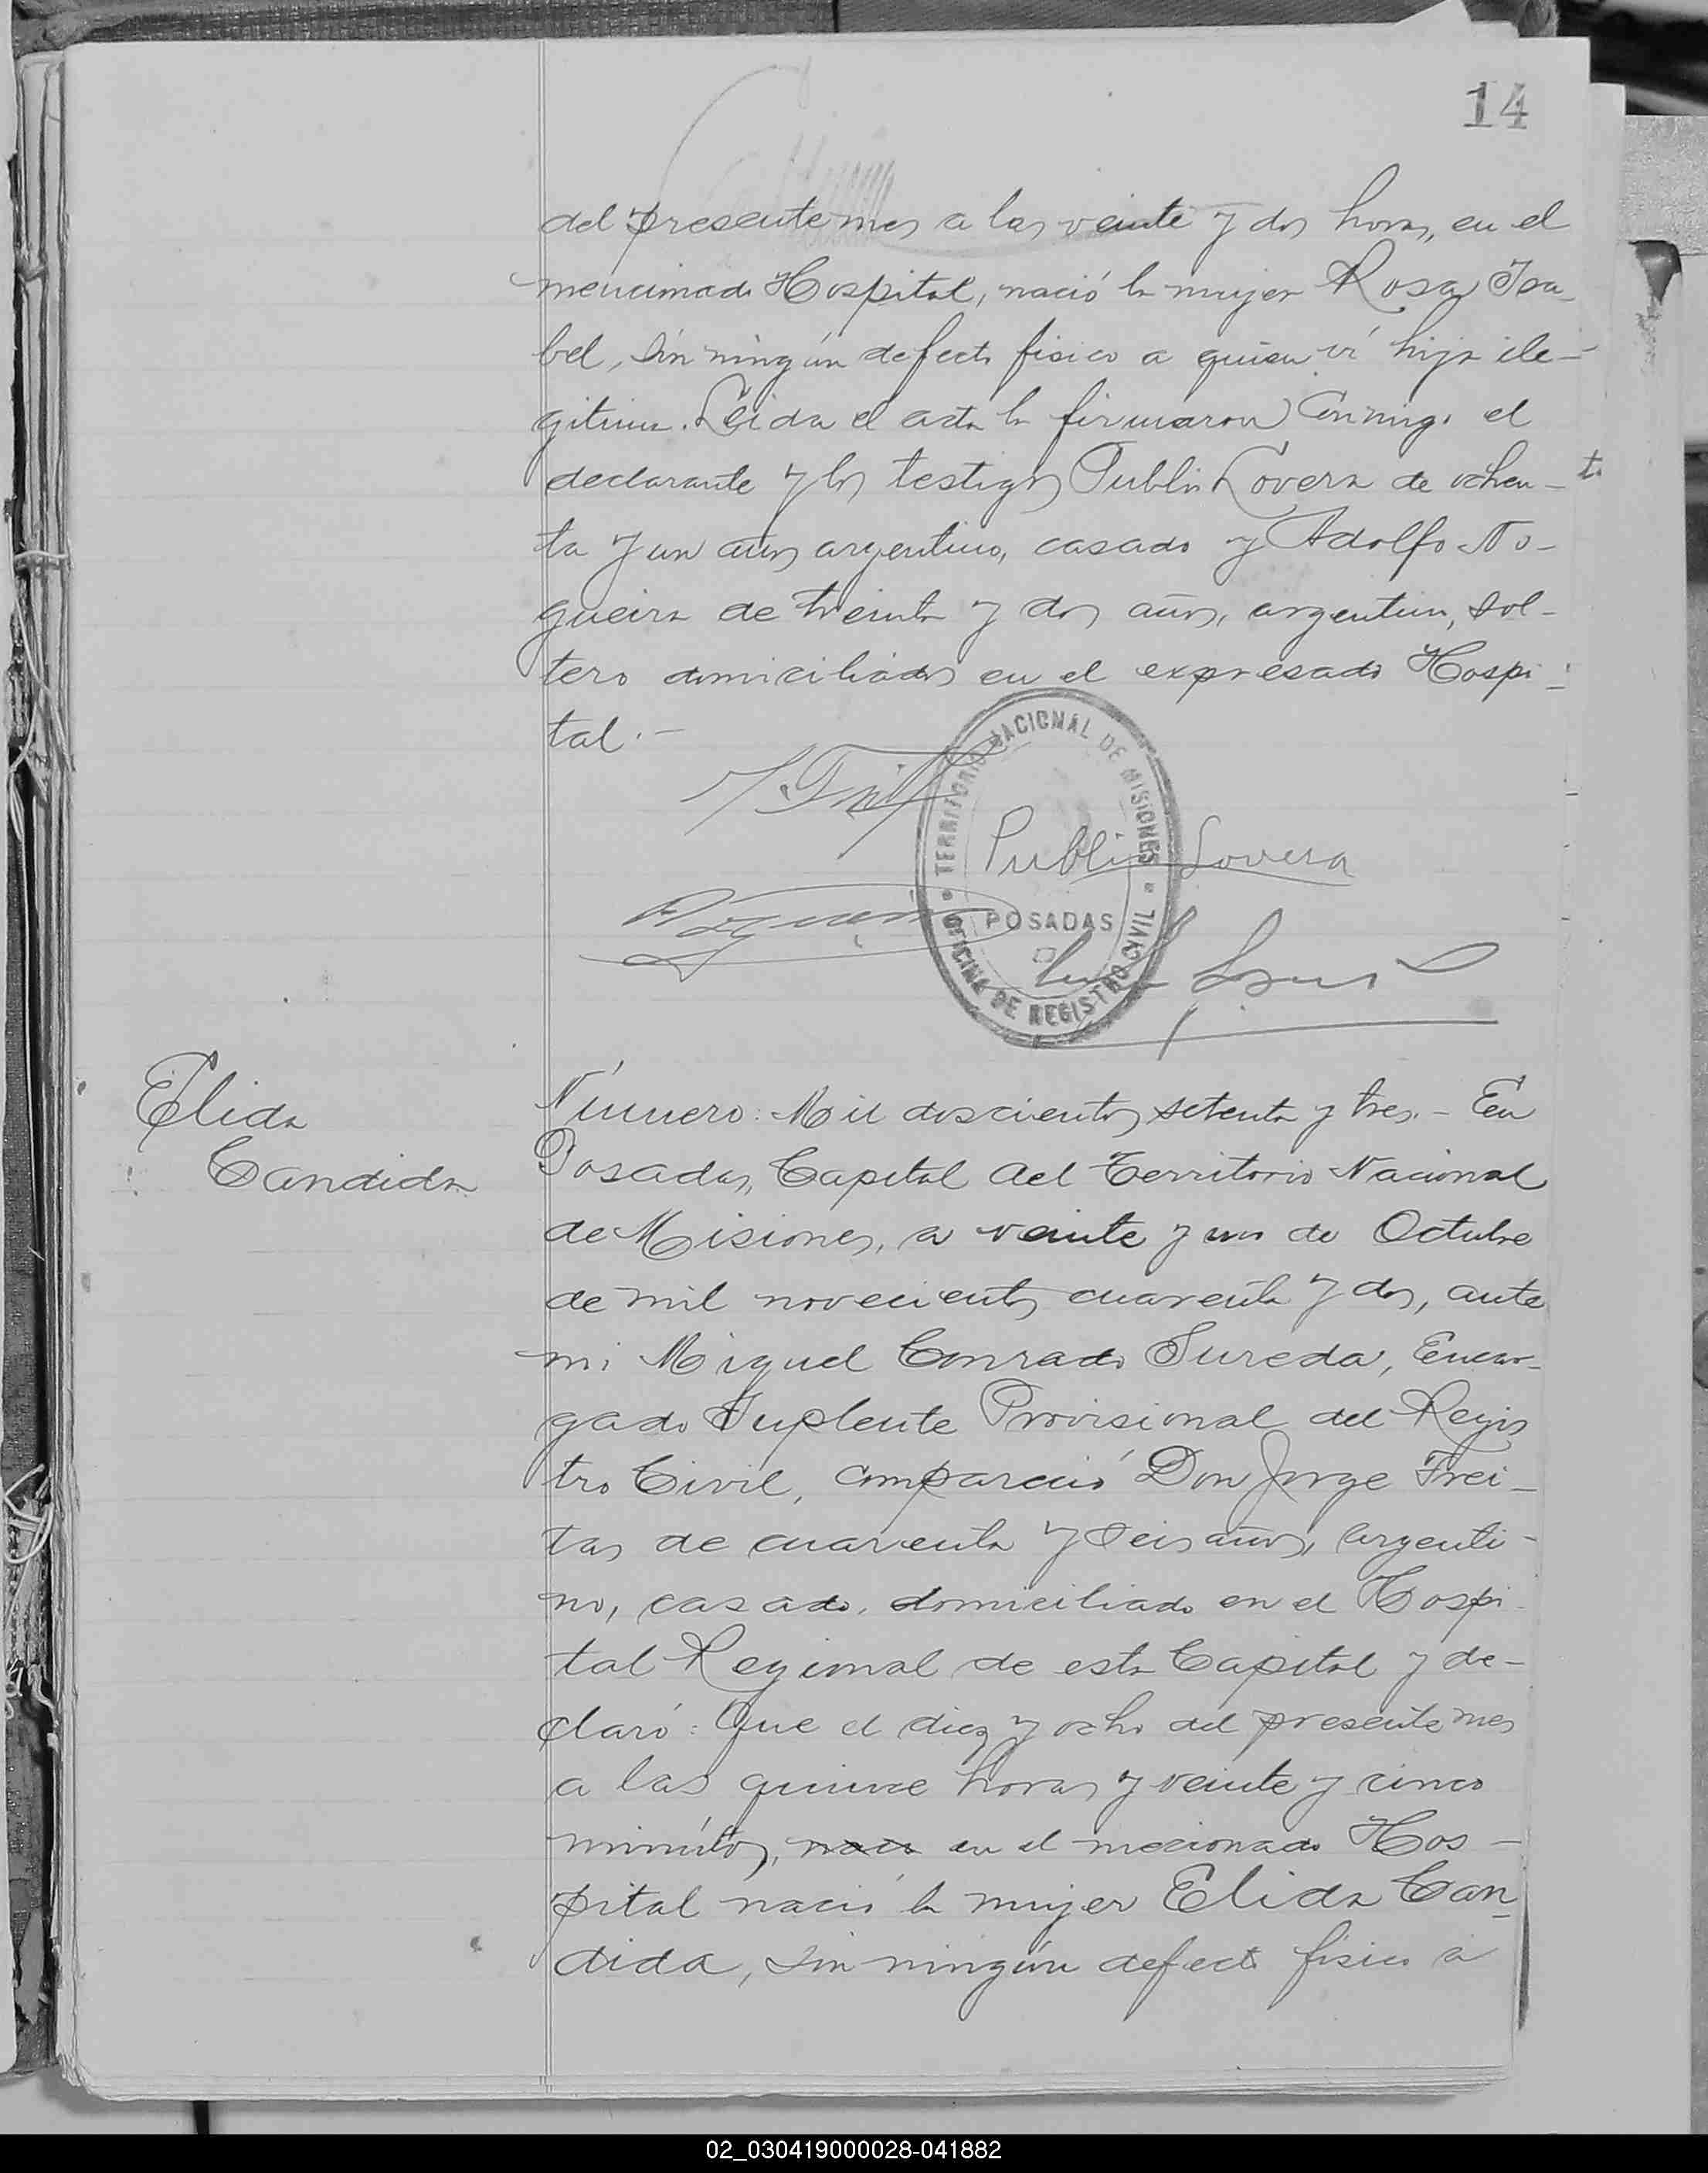 14
del presente mes a las veinte y dos horas, en el
mencionado Hospital, nació la mujer Rosa Isa-
bel, sin ningún defecto fisico a quien vi hija ile-
gitima. Leida el acta la firmaron conmigo el
declarante y los testigos Publio Lovera de ochen-
ta y un años argentino, casado y Adolfo No-
gueira de treinta y dos años, argentino, sol-
tero domiciliados en el expresado Hospi-
tal.-
TERRITORIO NACIONAL DE MISIONES
Publio Lovera
POSADAS
OFICINA DE REGISTRO CIVIL
Elida
Candida
Número: Mil doscientos setenta y tres.- En
Posadas, Capital del Territorio Nacional
de Misiones, a veinte y uno de Octubre
de mil novecientos cuarenta y dos, ante
mi Miguel Conrado Sureda, Encar-
gado Suplente Provisional del Regis
tro Civil, compareció Don Jorge Frei-
tas de cuarenta y seis años, argenti-
no, casado, domiciliado en el Hospi-
tal Regional de esta Capital y de-
claró: Que el diez y ocho del presente mes
a las quince horas y veinte y cinco
minutos, en el mecionado Hos-
pital nació la mujer Elida Can-
dida, sin ningún defecto fisico a
02_030419000028-041882